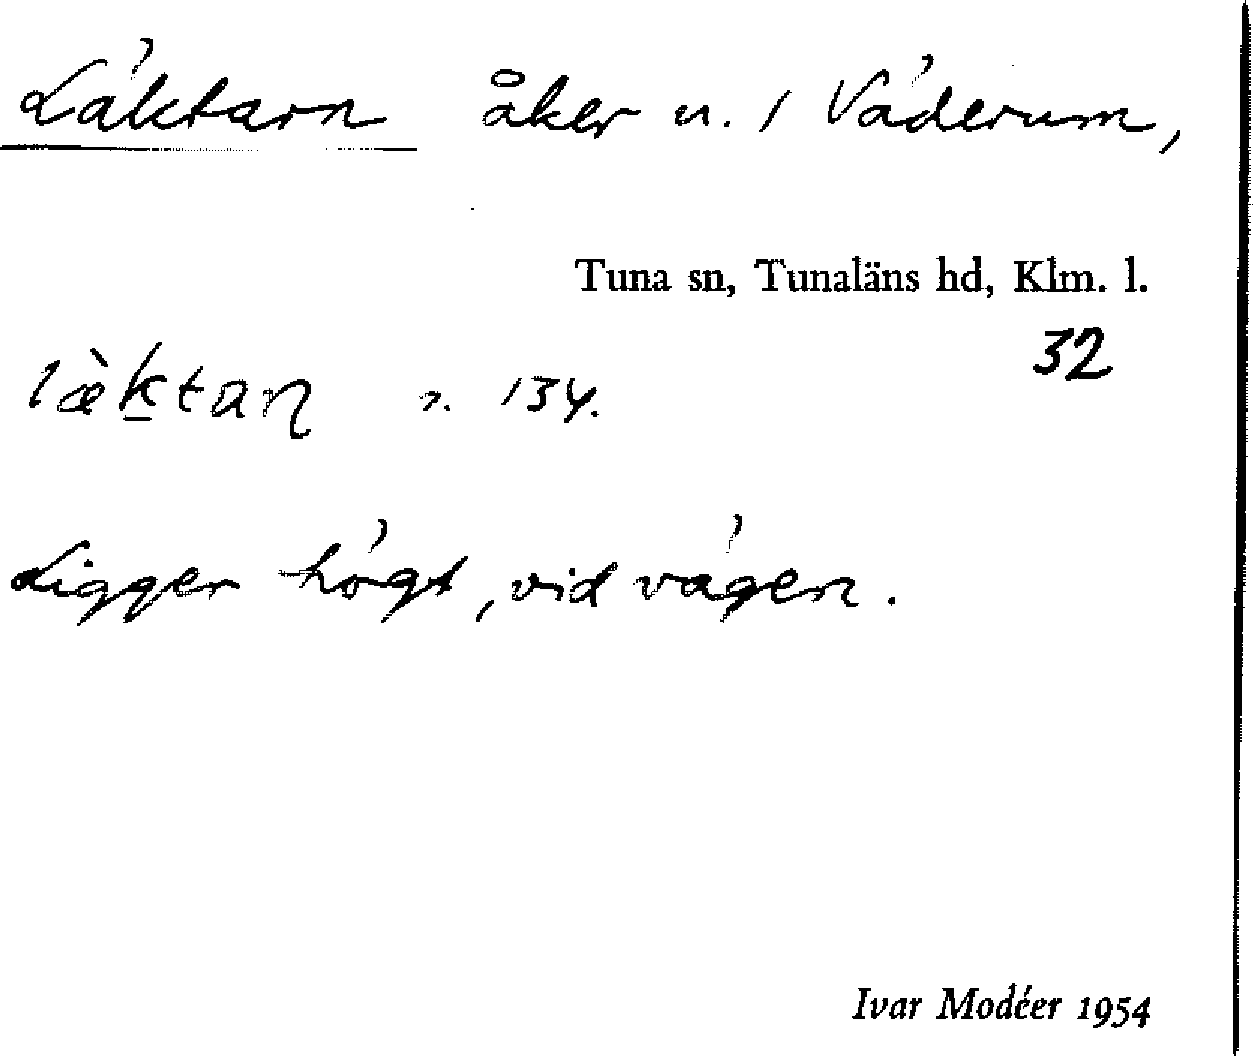 Läktarn åker u. 1 Väderum,
Tuna sn, Tunaläns hd, Klm. l.
32
læ̀ktaɳ n. 134.
Ligger högt, vid vägen.
Ivar Modéer 1954